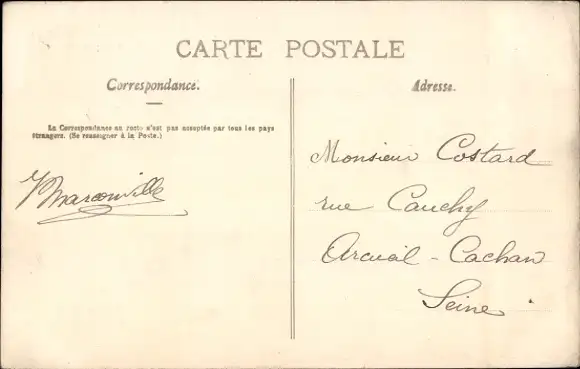 CARTE POSTALE
Correspondance.
La Correspondance au recto n'est pas acceptée par tous les pays
étrangers. (Se renseigner à la Poste.)
Marconville
Adresse.
Monsieur Costard
rue Cauchy
Arcueil - Cachan
Seine